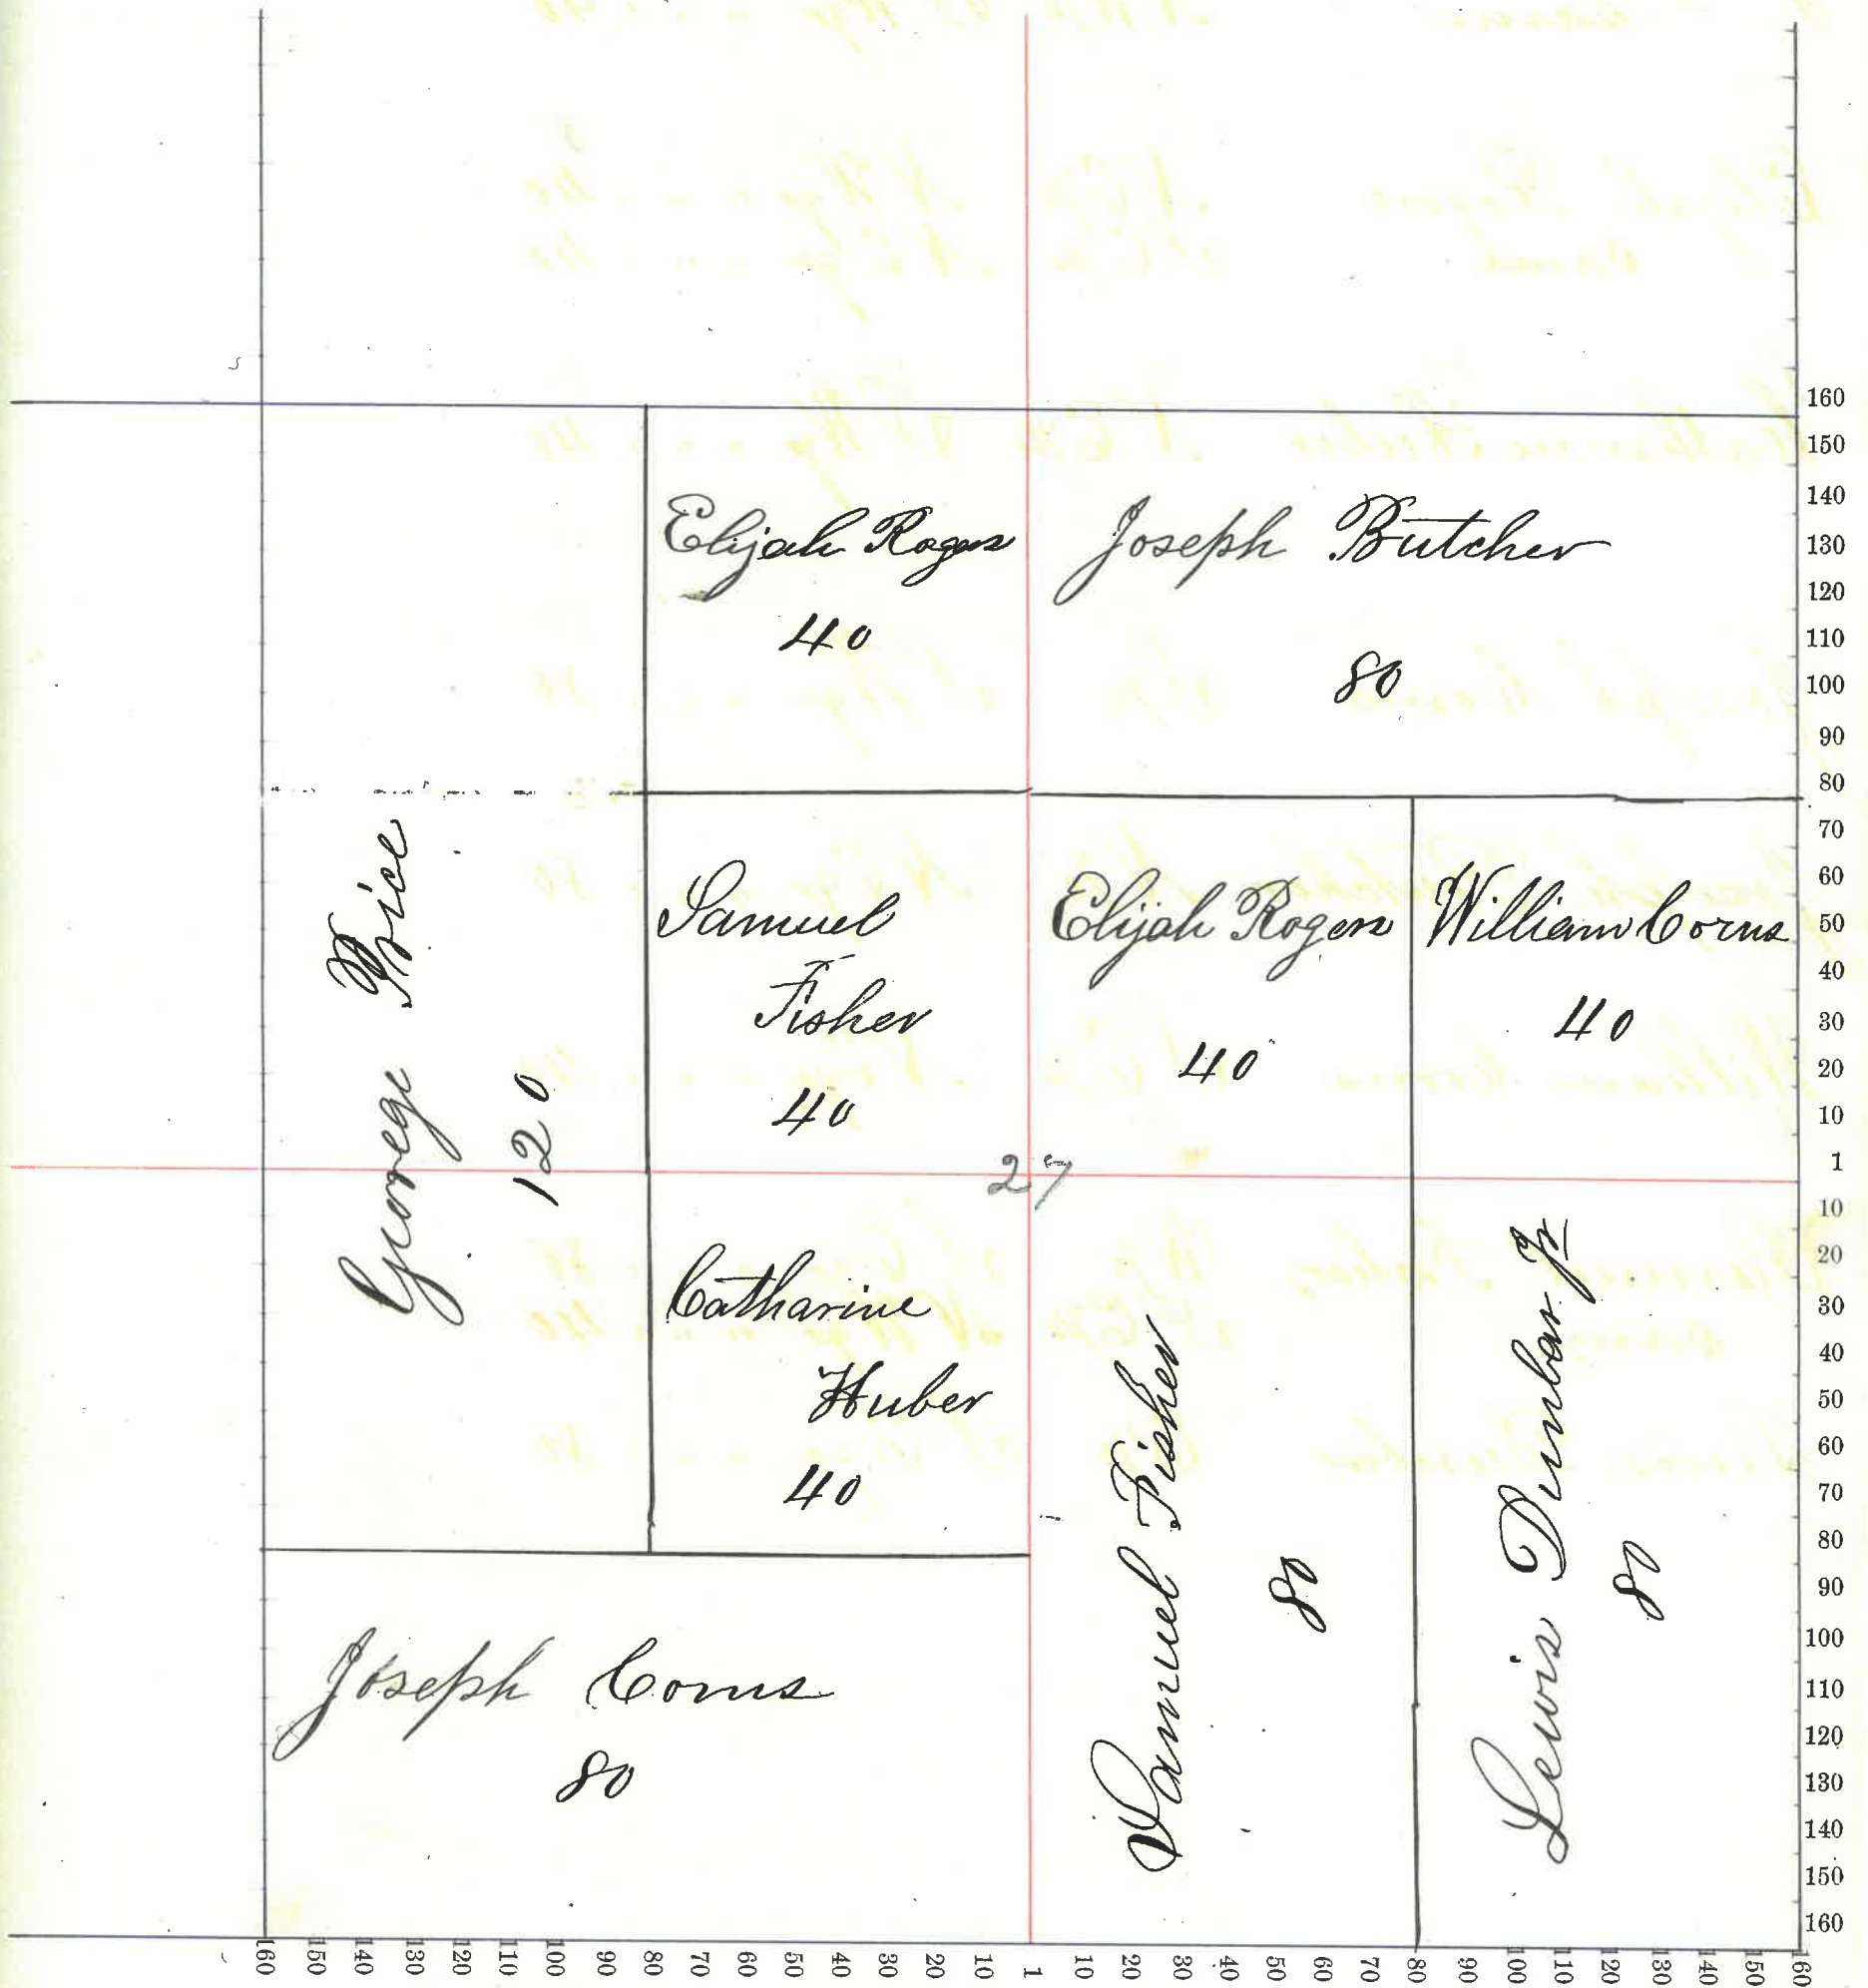 Elijah Rogers
40
Joseph Butcher
80
George Price
120
Samuel
Fisher
40
Elijah Rogers
40
William Corns
40
27
Catharine
Huber
40
Samuel Fisher
80
Lewis Dunbar Jr
80
Joseph Corns
80
160
150
140
130
120
110
100
90
80
70
60
50
40
30
20
10
1
10
20
30
40
50
60
70
80
90
100
110
120
130
140
150
160
160 150 140 130 120 110 100 90 80 70 60 50 40 30 20 10 1 10 20 30 40 50 60 70 80 90 100 110 120 130 140 150 160